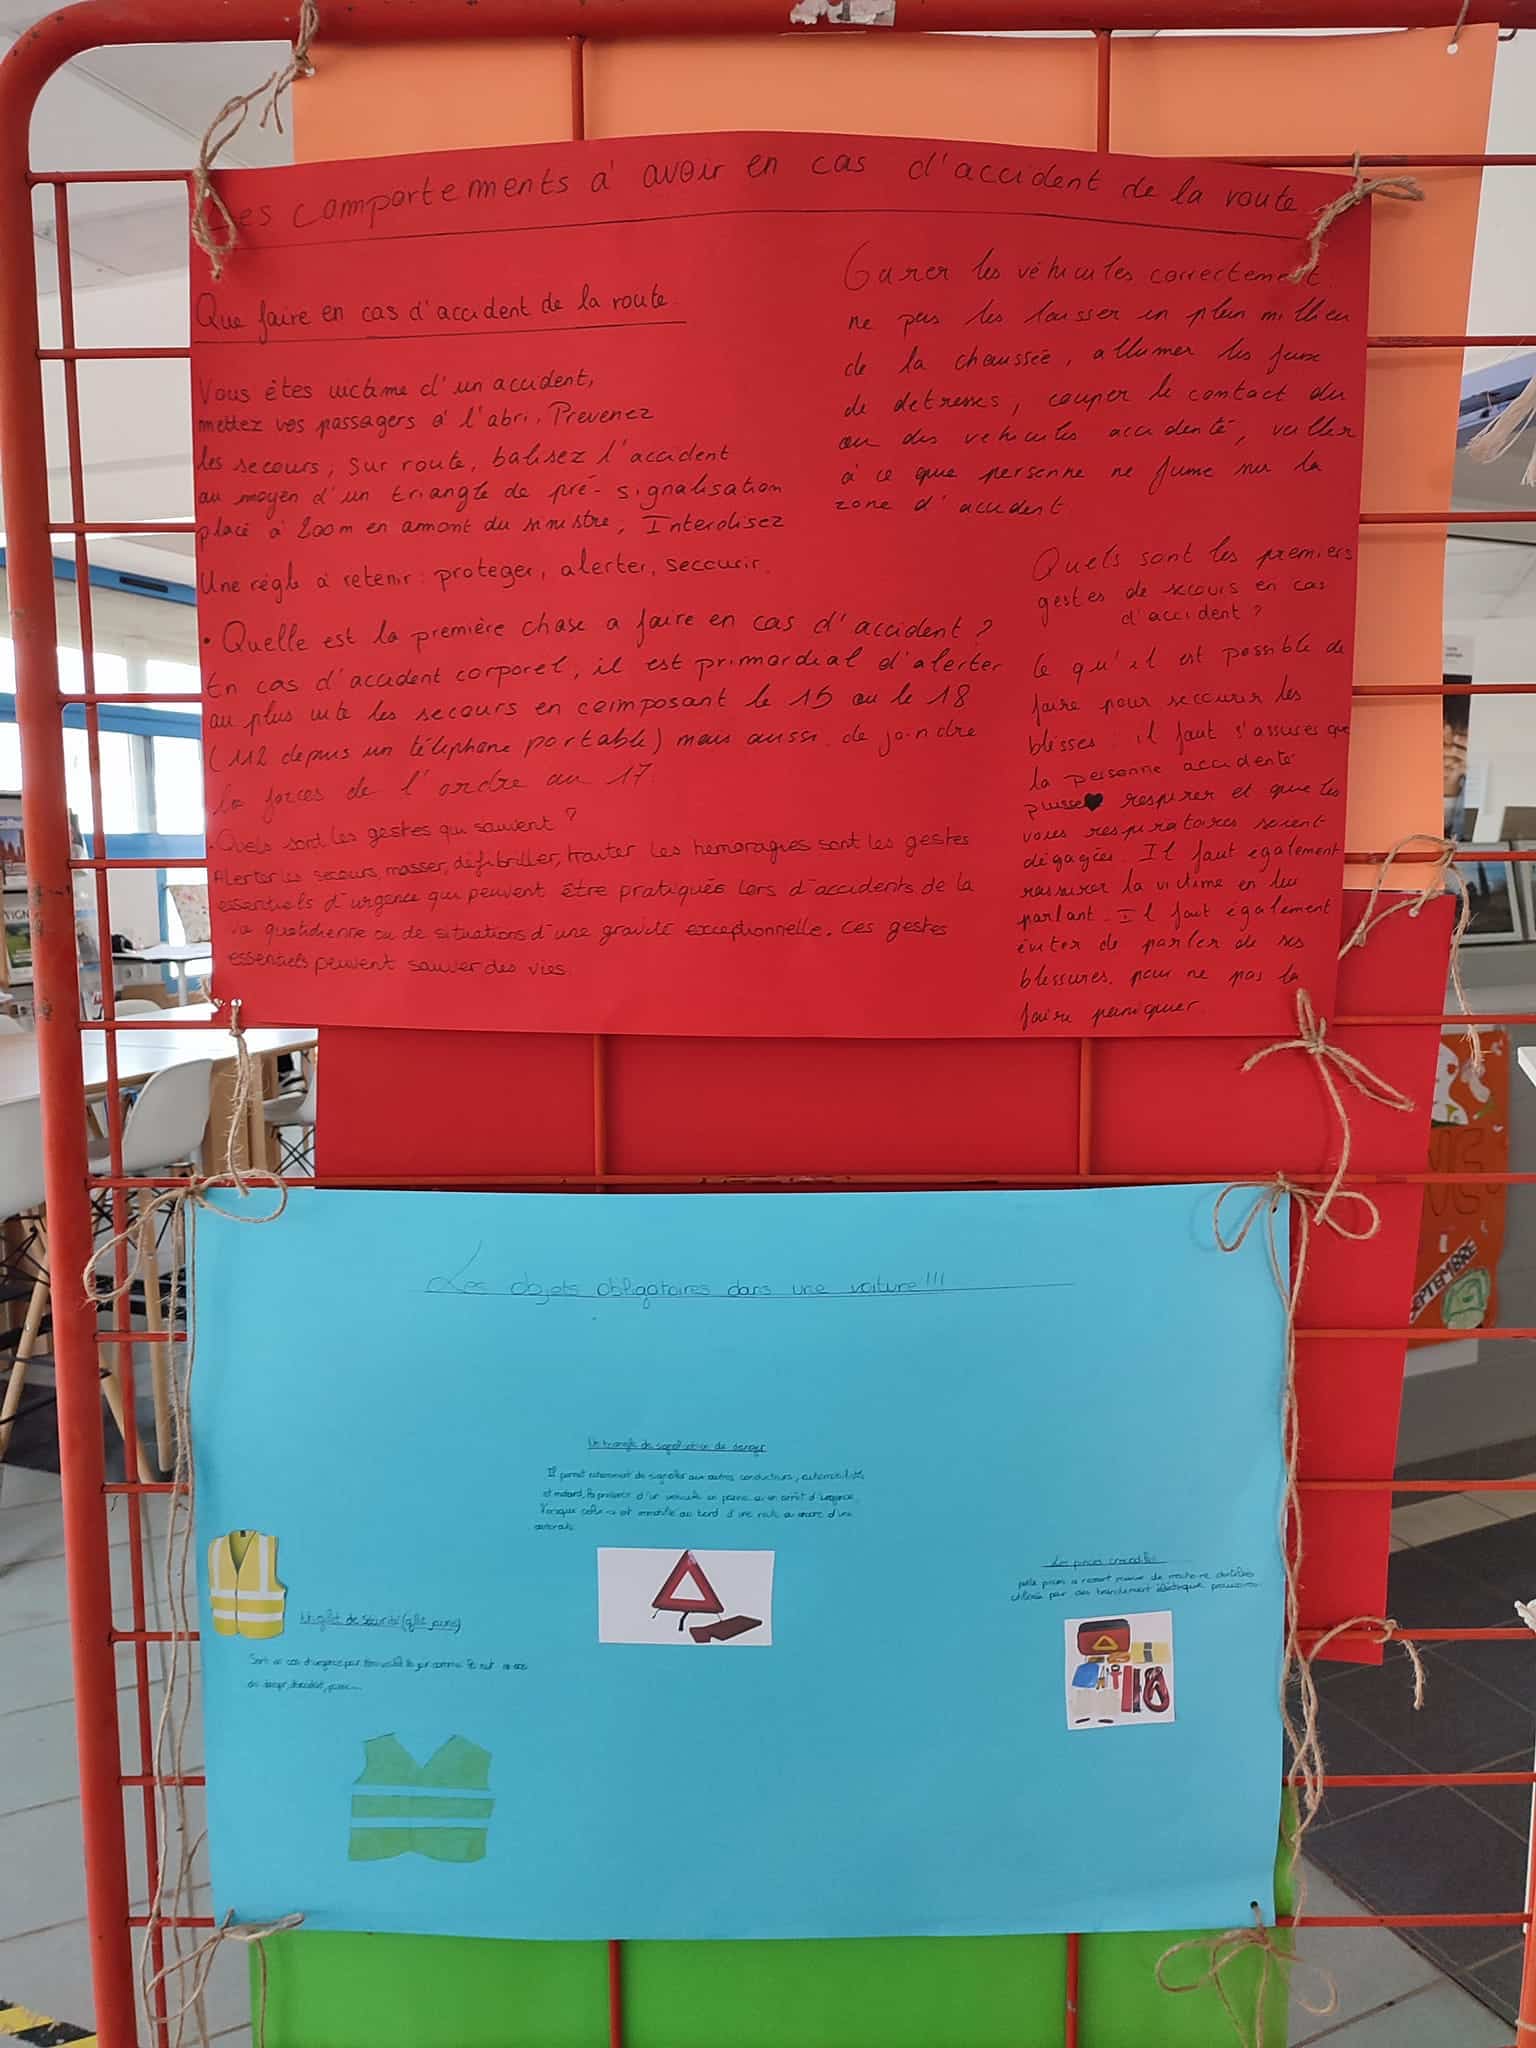 Les comportements à avoir en cas d'accident de la route
Que faire en cas d'accident de la route.
Vous êtes victime d'un accident,
mettez vos passagers à l'abri. Prevenez
les secours, sur route, balisez l'accident
au moyen d'un triangle de pré-signalisation
placé à 200m en amont du sinistre, Interdisez
Une régle à retenir: proteger, alerter, secourir.
• Quelle est la première chose a faire en cas d'accident?
En cas d'accident corporel, il est primordial d'alerter
au plus vite les secours en composant le 15 ou le 18
(112 depuis un téléphone portable) mais aussi de joindre
les forces de l'ordre au 17
• Quels sont les gestes qui sauvent?
Alerter les secours, masser, défibriller, traiter les hémoragies sont les gestes
essentiels d'urgence qui peuvent être pratiqués lors d'accidents de la
vie quotidienne ou de situations d'une gravité exceptionnelle. ces gestes
essentiels peuvent sauver des vies.
Garer les véhicules correctement.
ne pas les laisser en plein millieu
de la chaussée, allumer les feux
de detresses, couper le contact du
ou des vehicules accidenté, veiller
à ce que personne ne fume sur la
zone d'accident.
Quels sont les premiers
gestes de secours en cas
d'accident?
Ce qu'il est possible de
faire pour secourir les
blesses: il faut s'assurer que
la personne accidenté
puisse respirer et que les
voies respiratoires soient
dégagées. Il faut également
rassurer la victime en lui
parlant. Il faut également
éviter de parler de ses
blessures, pour ne pas la
faire paniquer.
Les objets obligatoires dans une voiture!!!
Un triangle de signalisation de danger
Il permet de signaler aux autres conducteurs, automobilistes
et motard, la présence d'un vehicule en panne ou en arrêt d'urgence.
Lorsque celui-ci est immobilisé au bord d'une route ou encore d'une
autoroute.
Un gilet de sécurité (gilet jaune)
Les pinces crocodiles
SEPTEMBRE